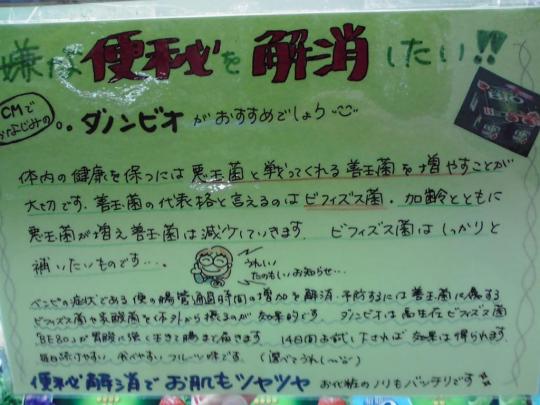 嫌な便秘を解消したい!!
CMでおなじみの
ダノンビオがおすすめでしょう
体内の健康を保つには悪玉菌と戦ってくれる善玉菌を増やすことが
大切です。善玉菌の代表格と言えるのはビフィズス菌。加齢とともに
悪玉菌が増え善玉菌は減少していきます。ビフィズス菌はしっかりと
補いたいものです…。
うれしい
たのもしいお知らせ…
ベンピの症状である便の腸管通過時間の増加を解消・予防するには善玉菌に優する
ビフィズス菌や乳酸菌を体外から摂るのが効果的です。ダノンビオは高生存ビフィズス菌
"BE80"が胃酸に強く生きて腸まで届きます。14日間お試し下されば効果は得られます。
毎日続けやすい、食べやすいフルーツ味です。(選べてうれしい)
便秘解消でお肌もツヤツヤ お化粧のノリもバッチリです